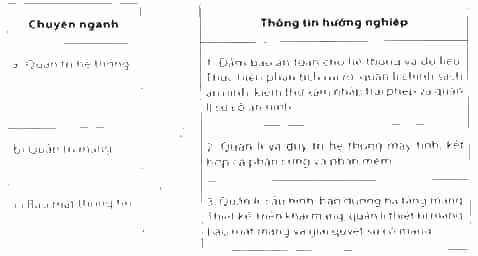 Chuyên ngành
Thông tin hướng nghiệp
a. Quản trị hệ thống
1. Đảm bảo an toàn cho hệ thống và dữ liệu.
Thực hiện phân tích rủi ro, quản lí chính sách
an ninh, kiểm thử xâm nhập trái phép và quản
lí sự cố an ninh.
b) Quản trị mạng
2. Quản lí và duy trì hệ thống máy tính, kết
hợp cả phần cứng và phần mềm.
c) Bảo mật thông tin
3. Quản lí, cấu hình, bảo dưỡng hạ tầng mạng.
Thiết kế, triển khai mạng, quản lí thiết bị mạng,
bảo mật mạng và giải quyết sự cố mạng.